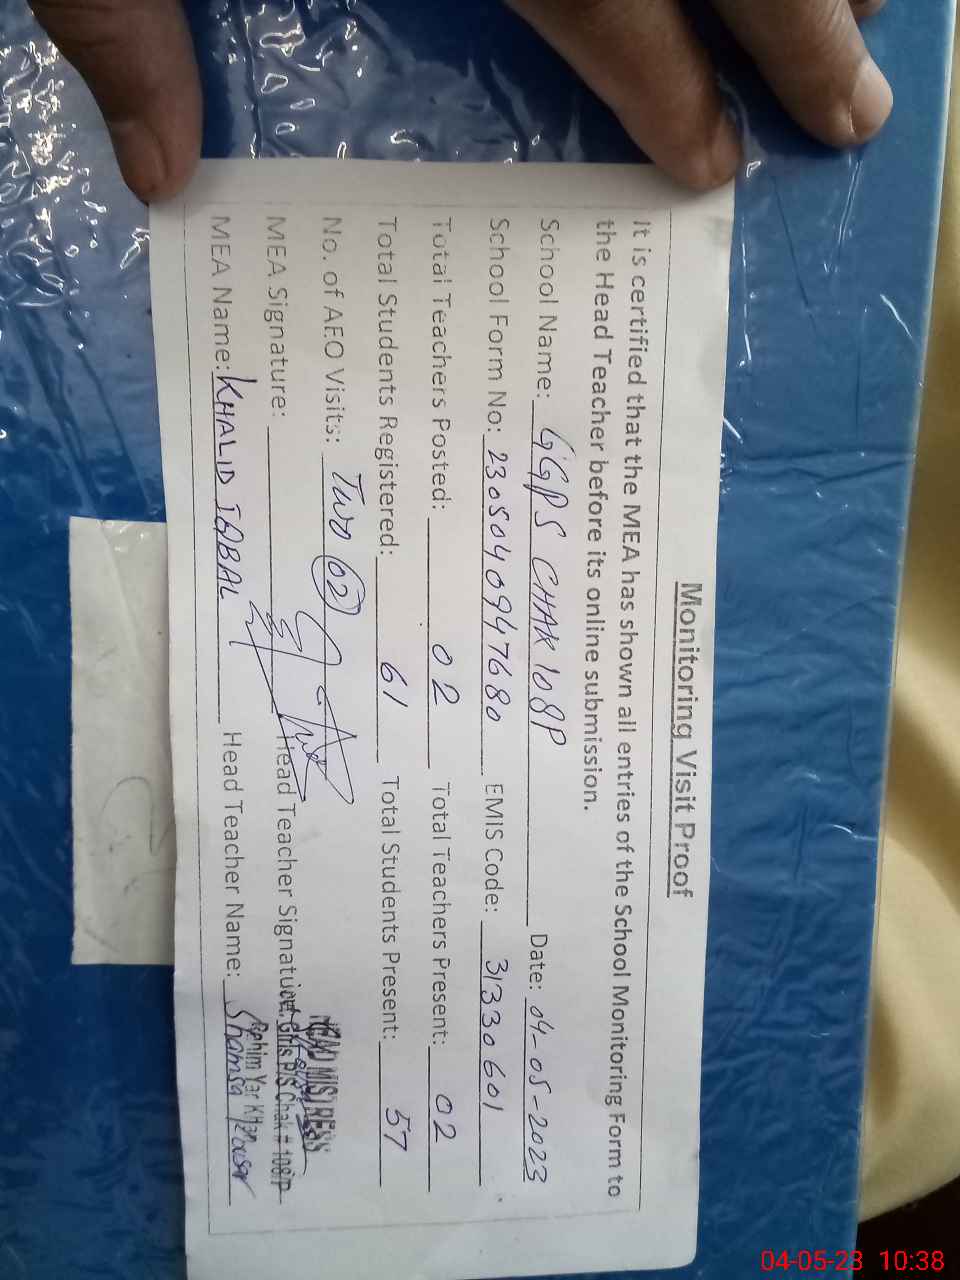 Monitoring Visit Proof
It is certified that the MEA has shown all entries of the School Monitoring Form to
the Head Teacher before its online submission.
School Name: GGPS CHAK 108P Date: 04-05-2023
School Form No: 2305040947680 EMIS Code: 31330601
Total Teachers Posted: 02 Total Teachers Present: 02
Total Students Registered: 61 Total Students Present: 57
No. of AEO Visits: Two (02)
MEA Signature: Head Teacher Signature:
HEAD MISTRESS
Govt. Girls P/S Chak # 108/P
Rahim Yar Khan
MEA Name: KHALID IQBAL Head Teacher Name: Shamsa Kousar
04-05-23 10:38